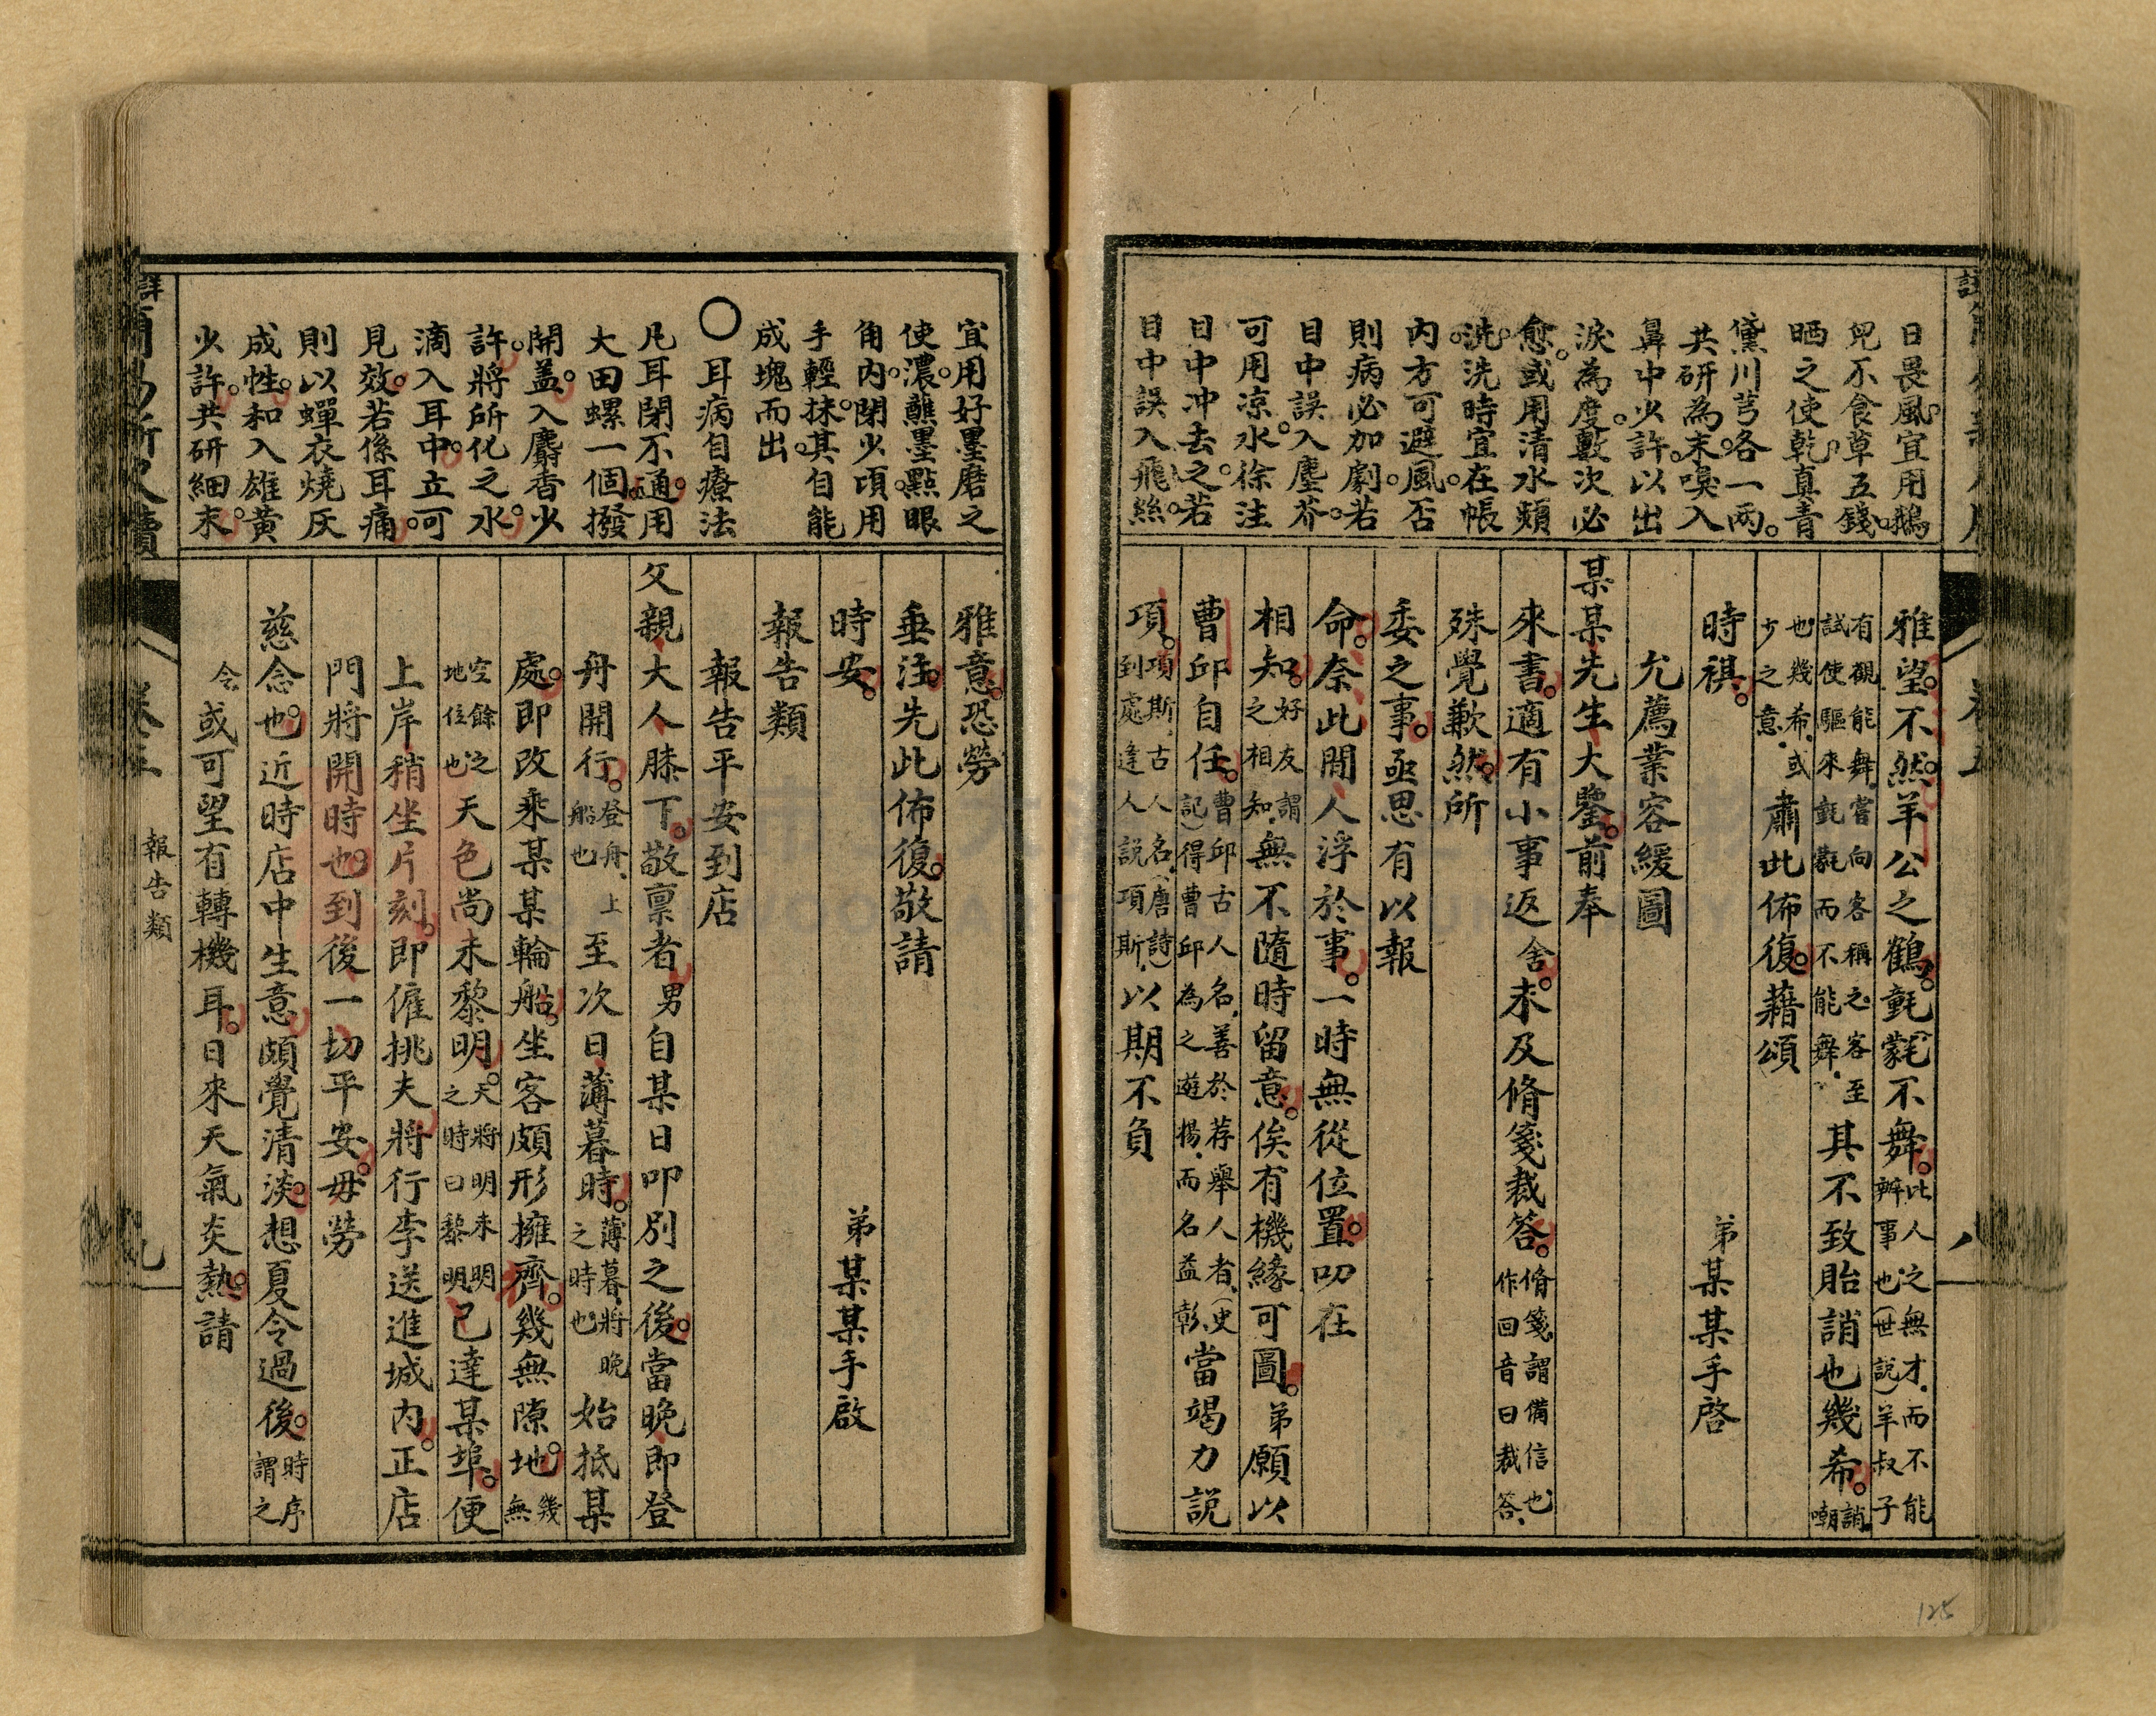 日畏風。宜用鵝
兒不食草五錢。
晒之使乾。真青
黛川芎各一兩。
共研為末。嗅入
鼻中少許。以出
淚為度。數次必
愈。或用清水頻
洗。洗時宜在帳
內方可避風。否
則病必加劇。若
目中誤入塵芥。
可用凉水。徐注
目中冲去之。若
目中誤入飛絲。
雅望。不然。羊公之鶴。氃氋不舞。此人之無才。而不能辦事也。(世說)羊叔子
有鶴能舞。嘗向客稱之。客至試使驅來。氃氋而不能舞。其不致貽誚也幾希。誚。嘲
也。幾希。或少之意。肅此佈復。藉頌
時祺。 弟某某手啓
允薦業容緩圖
某某先生大鑒。前奉
來書。適有小事返舍。未及脩箋裁答。脩箋。謂備信也。作回音曰裁答。
殊覺歉然。所
委之事。亟思有以報
命。奈此間人浮於事。一時無從位置。叨在
相知。好友謂之相知。無不隨時留意。俟有機緣可圖。弟願以
曹邱自任。曹邱古人名。善於荐舉人者。(史記)得曹邱為之遊揚。而名益彰。當竭力說
項。項斯。古人名。(唐詩)到處逢人說項斯。以期不負
八
宜用好墨磨之
使濃。蘸墨點眼
角內。閉少頃。用
手輕抹。其自能
成塊而出。
○耳病自療法
凡耳閉不通。用
大田螺一個。撥
開蓋。入麝香少
許。將所化之水。
滴入耳中。立可
見效。若係耳痛。
則以蟬衣燒灰
成性。和入雄黃
少許。共研細末。
雅意。恐勞
垂注。先此佈復。敬請
時安。 弟某某手啟
報告類
報告平安到店
父親大人膝下。敬禀者。男自某日叩別之後。當晚即登
舟開行。登舟、上船也。至次日薄暮時。薄暮、將晚之時也。始抵某
處。即改乘某某輪船。坐客頗形擁擠。幾無隙地。幾無
空餘之地位也。天色尚未黎明。天將明未明之時曰黎明。已達某埠。便
上岸稍坐片刻。即僱挑夫將行李送進城內。正店
門將開時也。到後一切平安。毋勞
慈念也。近時店中生意頗覺清淡。想夏令過後。時序謂之
令。或可望有轉機耳。日來天氣炎熱。請
報告類
九
125